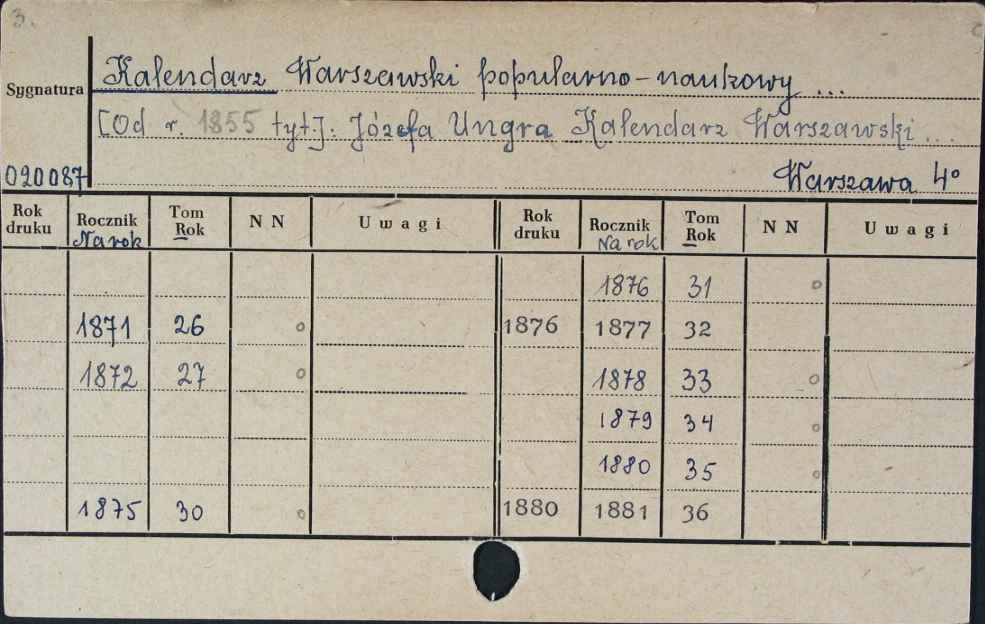 3.
Sygnatura Kalendarz Warszawski popularno-naukowy ...
[Od r. 1855 tyt]: Józefa Ungra Kalendarz Warszawski ...
020087 Warszawa 4°
Rok druku Rocznik Na rok Tom Rok N N Uwagi Rok druku Rocznik Na rok Tom Rok N N Uwagi
1876 31 o
1871 26 o 1876 1877 32
1872 27 o 1878 33 o
1879 34 o
1880 35 o
1875 30 o 1880 1881 36